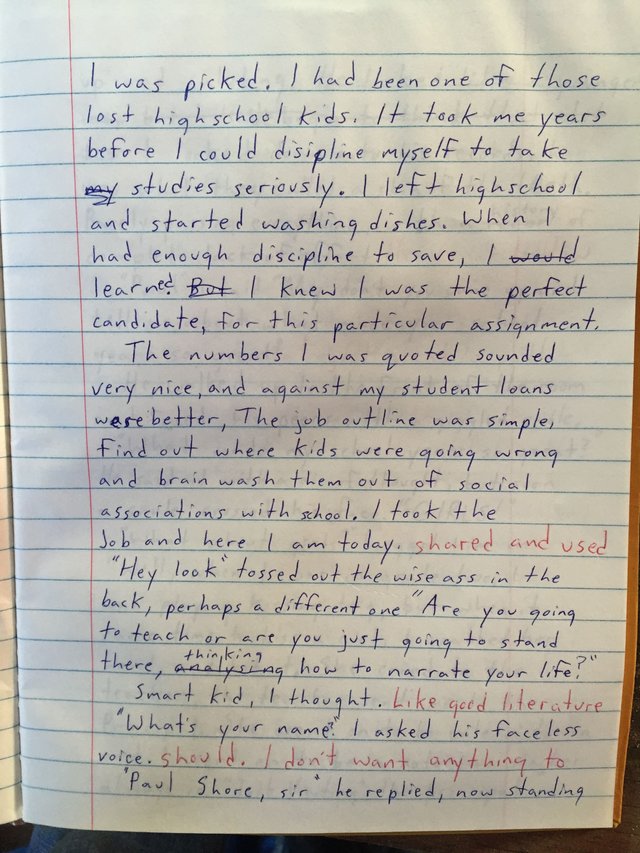 I was picked. I had been one of those
lost highschool kids. It took me years
before I could disipline myself to take
my studies seriously. I left highschool
and started washing dishes. When I
had enough discipline to save, I would
learned. But I knew I was the perfect
candidate, for this particular assignment.
The numbers I was quoted sounded
very nice, and against my student loans
were better, The job outline was simple,
Find out where kids were going wrong
and brain wash them out of social
associations with school. I took the
Job and here I am today. shared and used
"Hey look" tossed out the wise ass in the
back, perhaps a different one "Are you going
to teach or are you just going to stand
there, analysing thinking how to narrate your life?"
Smart kid, I thought. Like good literature
"What's your name?" I asked his faceless
voice. should. I don't want anything to
"Paul Shore, sir" he replied, now standing